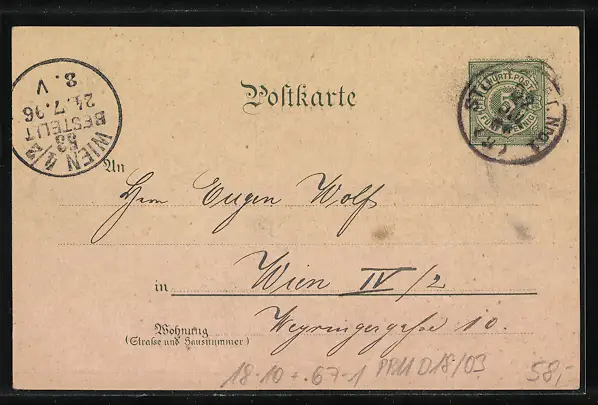 Postkarte
K. WÜRTT. POST
FÜNF PFENNIG
WIEN 4/2
53
BESTELLT
24.7.96
8. V
An
Herrn Eugen Wolf
in Wien IV/2
Weyringergasse 10.
Wohnung
(Straße und Hausnummer)
18-10 +. 67-1 PRU1 D18/03 58,-